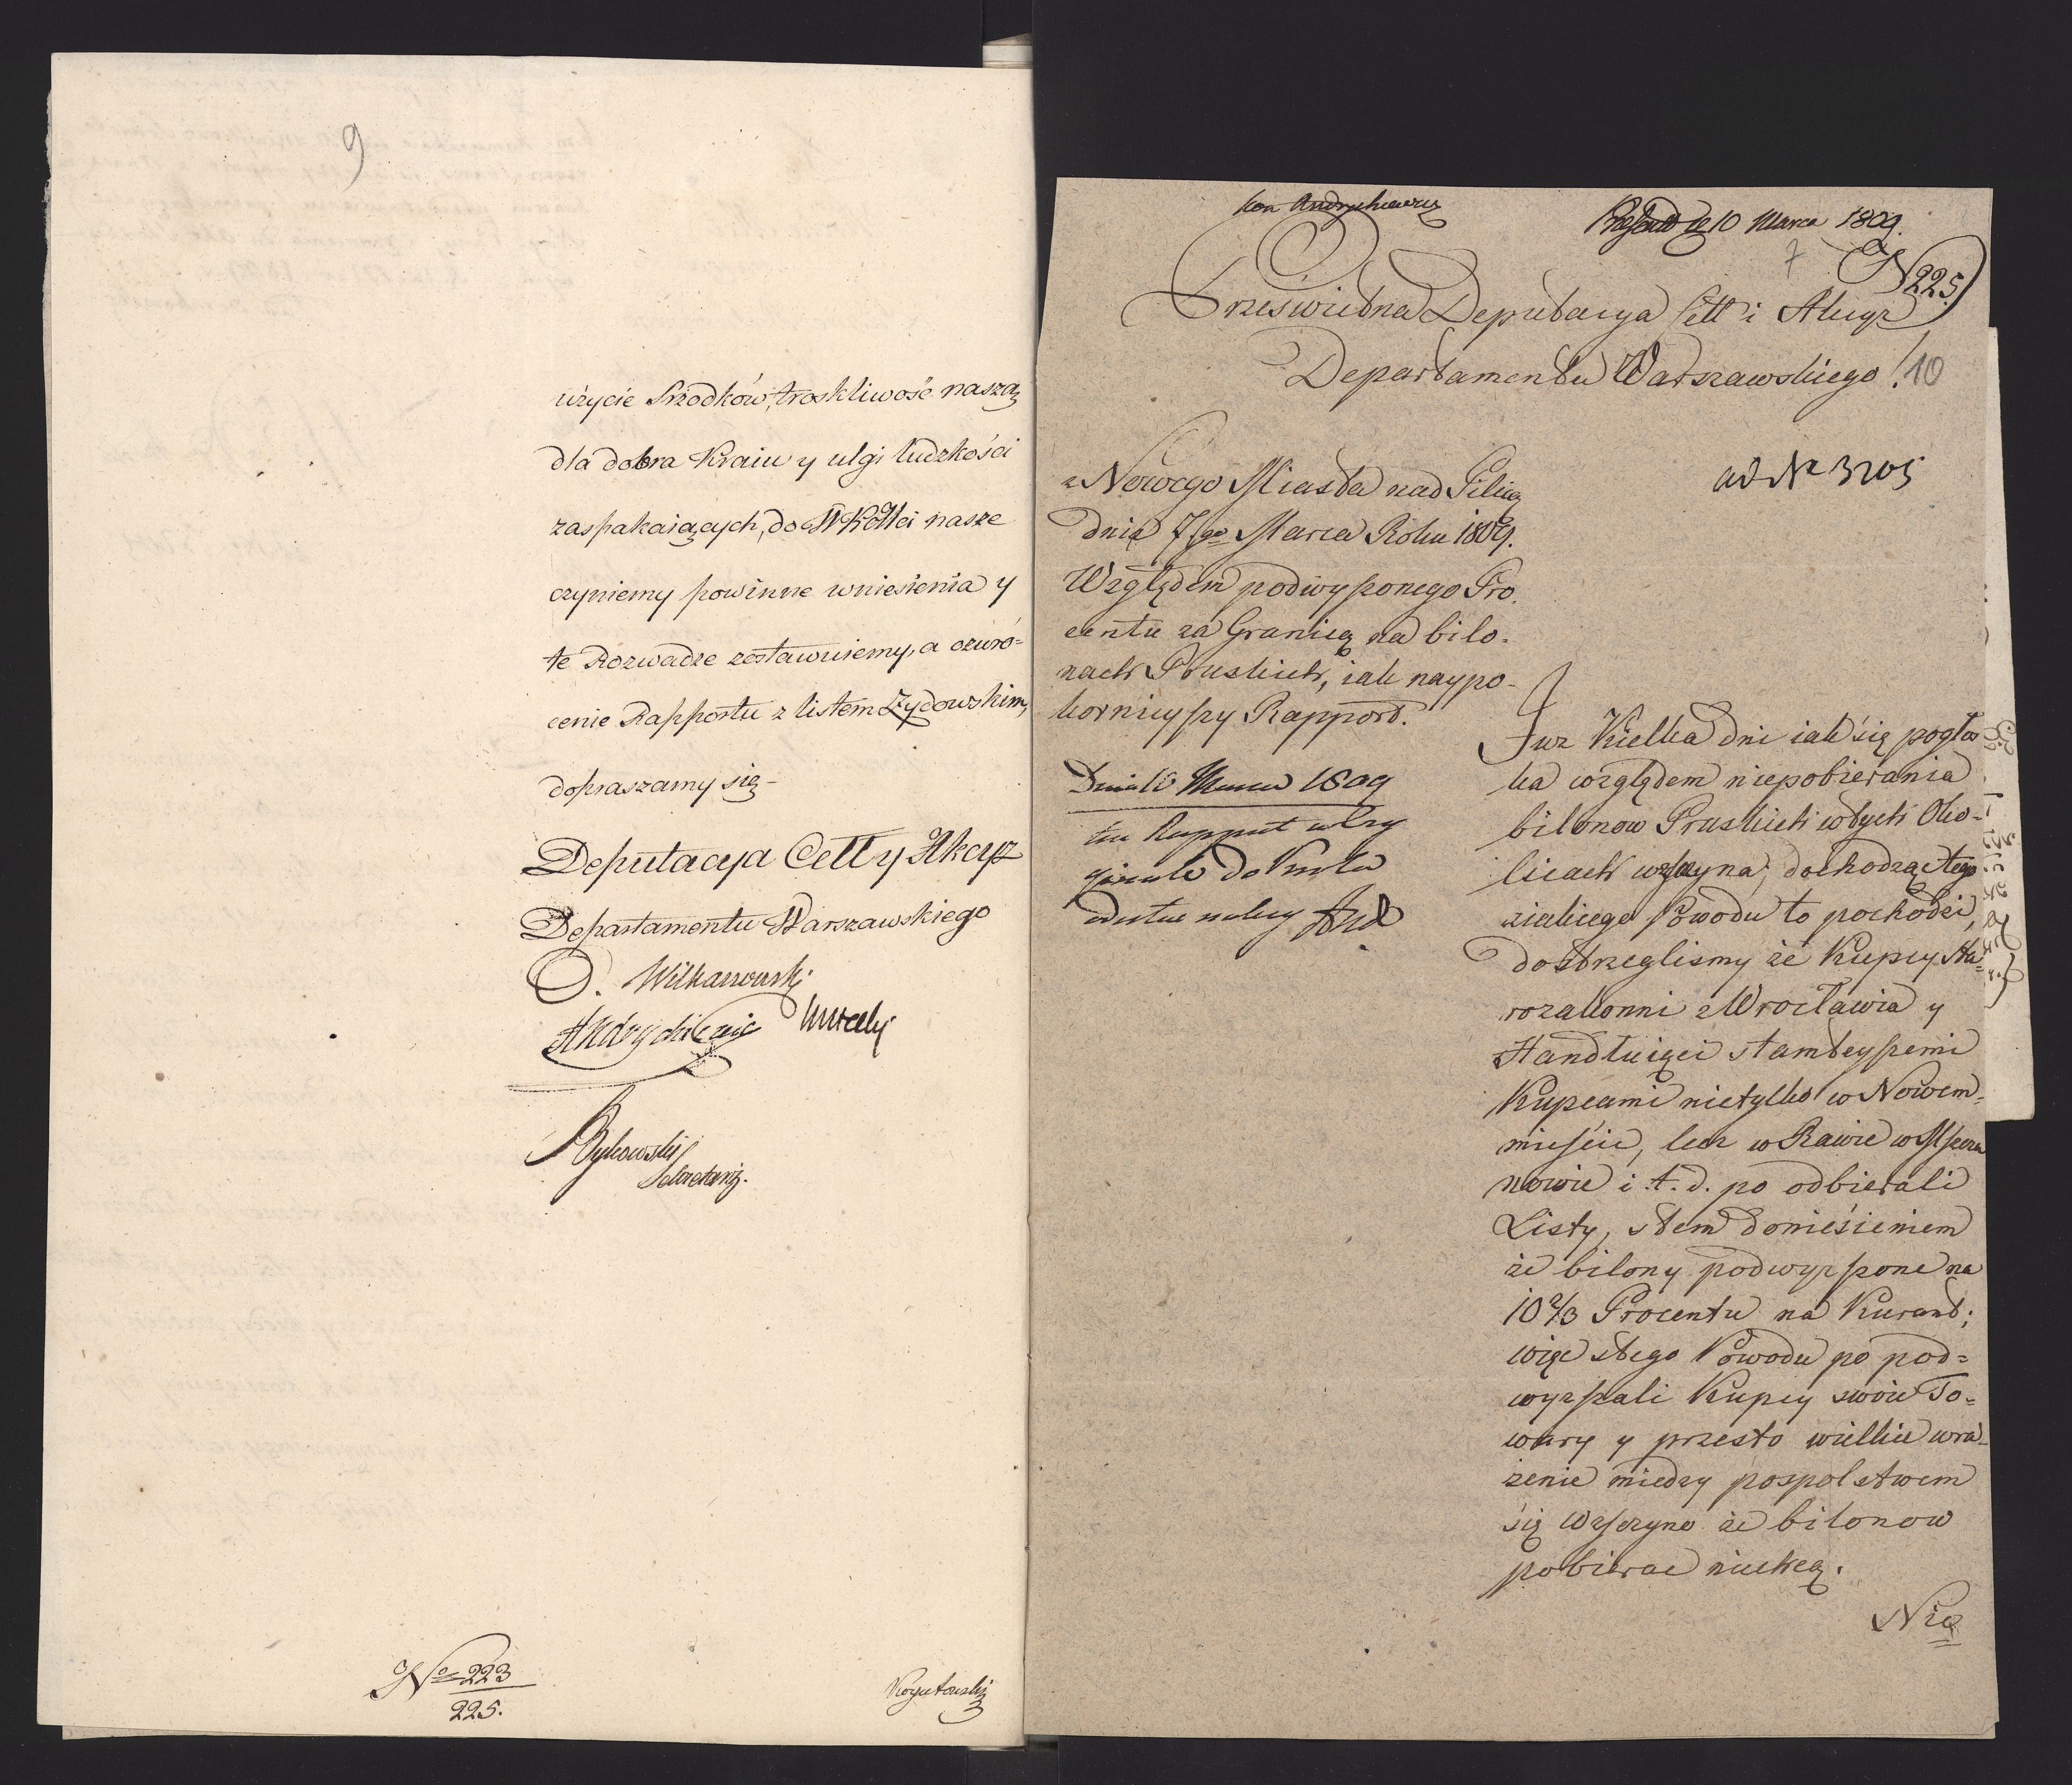 9
użycie Srzodków, troskliwość naszą
dla dobra Kraiu y ulgi ludzkości
zaspakaiących, do
nasze
czyniemy powinne wniesienia y
te Rozwadze zostawuiemy, a ozwró=
cenie Rapportu z listem Żydowskim,
dopraszamy się-
Deputacya Cell y Akcyz
Departamentu Warszawskiego
Andrychiewic
Sekretarz.
No 223
225.
Kon Andrychiewicz
10 Marca 1809.
7
N 225
Prześwietna Deputacya Cell i Akcyz
Departamentu Warszawskiego!
10
z Nowego Miasta nad Pilicą
dnia 7go Marca Roku 1809.
Względem podwyszonego Pro.
centu za Granicą na bilo-
nach Pruskich, iak naypo-
kornieyszy Rapport.
ad Nr 3205
Dnia 10 Marca 1809
ten Rapport w Ory
ginale do
Juz Kielka dni iak się pogłos
ka względem niepobierania
bilonow Pruskich w tych Oko-
licach wszczyna, dochodząc tego
z iakiego Powodu to pochodzi,
dostrzeglismy że Kupcy Sta=
rozakonni z Wrocławia y
Handluiąci z tamteyszemi
Kupcami nietylko w Nowem-
mieście, lecz w Rawie w Mszczo
nowie i t. d. po odbierali
Listy, z tem doniesieniem
że bilony podwyzszone na
10 2/3 Procentu na Kurant;
więc z tego Powodu po pod=
wyzszali Kupcy swoie To=
wary y przesto wielkie wra-
żenie miedzy pospolstwem
się wszczyno że bilonow
pobierac niechcą.
Nie